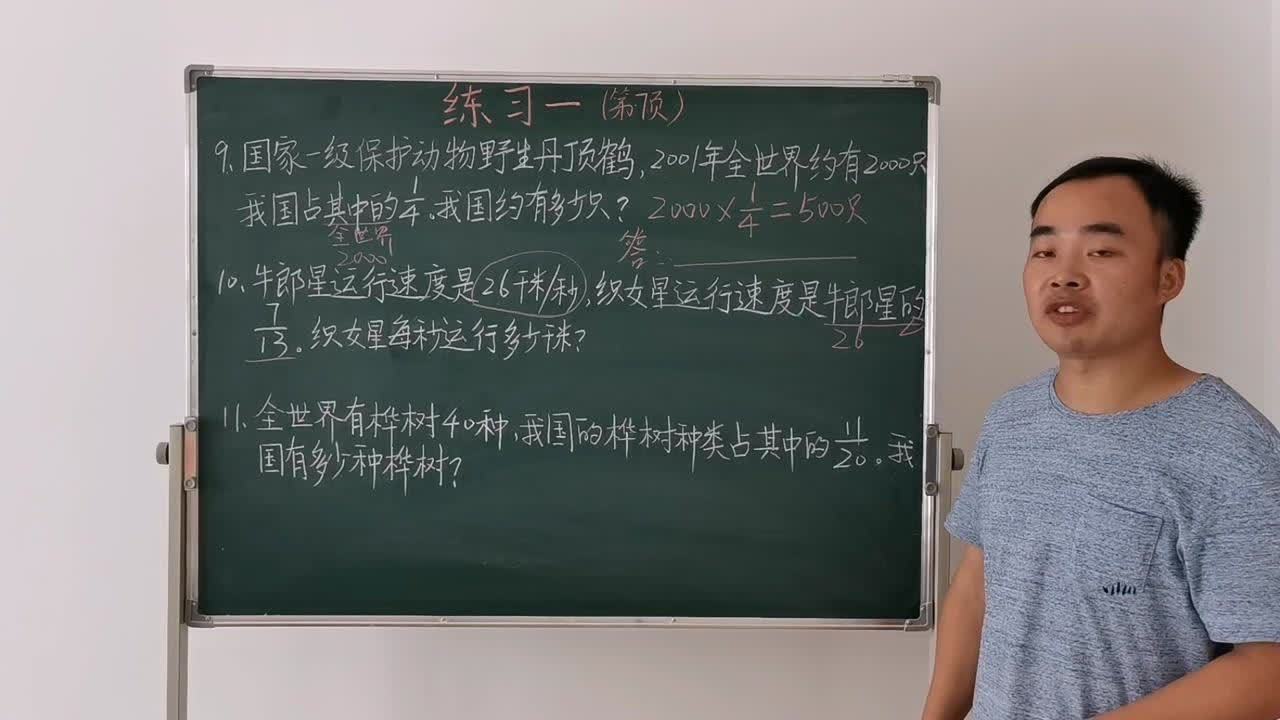 练习一(第7页)
9、国家一级保护动物野生丹顶鹤,2001年全世界约有2000只
我国占其中的1/4。我国约有多少只? 2000×1/4=500只
全世界
2000
答:
10、牛郎星运行速度是26千米/秒,织女星运行速度是牛郎星的
26
7/13。织女星每秒运行多少千米?
11、全世界有桦树40种,我国的桦树种类占其中的11/20。我
国有多少种桦树?